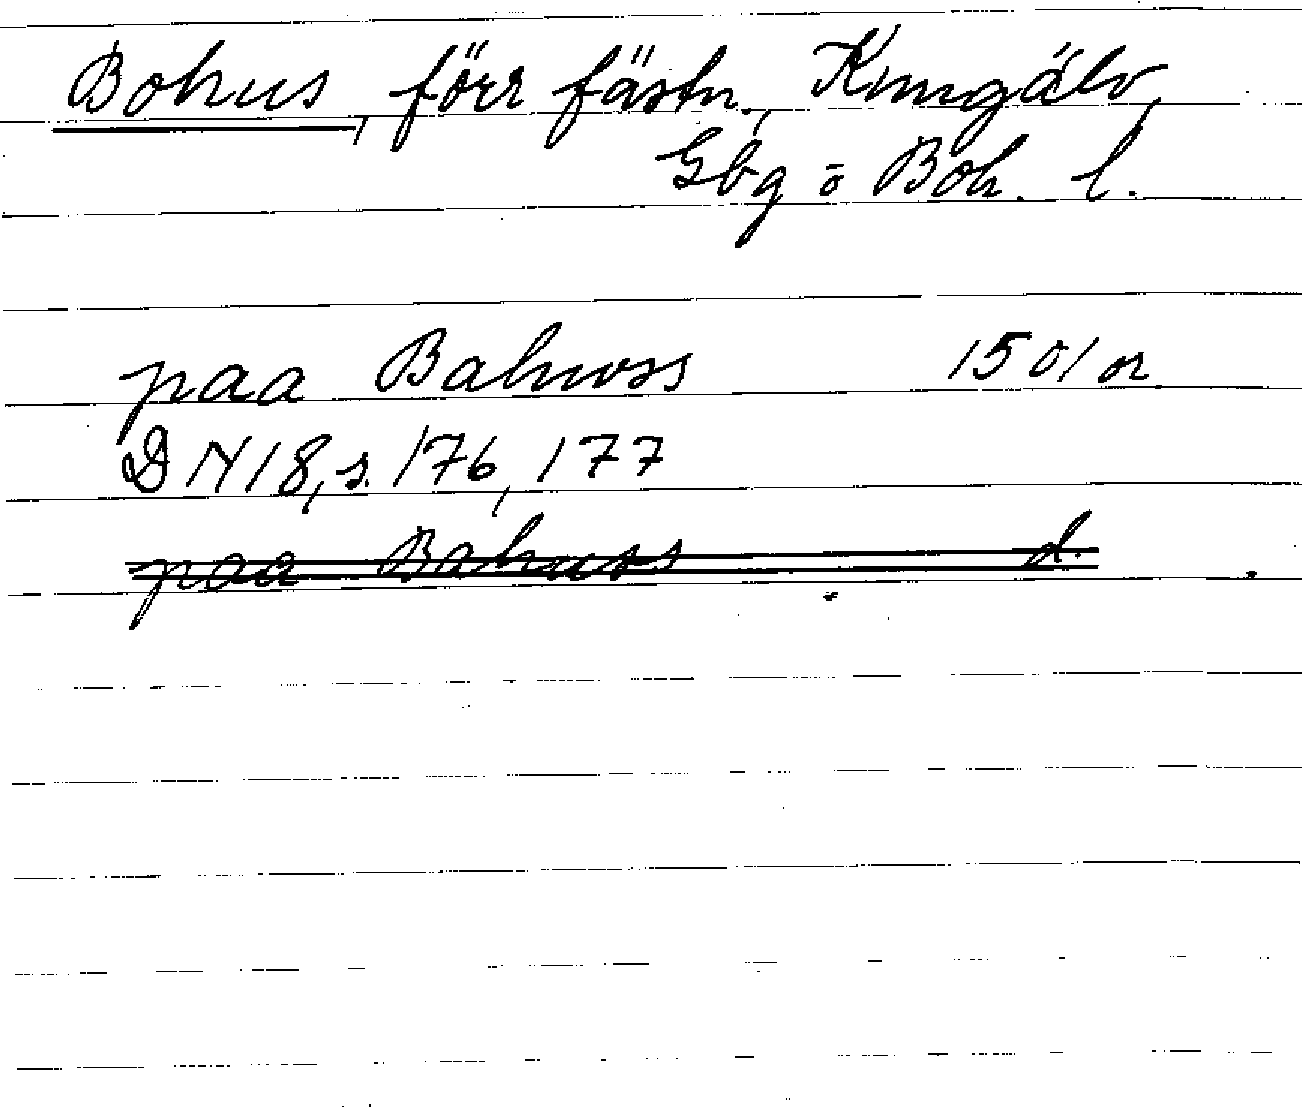 Bohus, förr fästn., Kungälv,
Gbg o Boh. l.
paa Bahwss 1501 or
DN 18, s. 176, 177
paa Bahuss d.